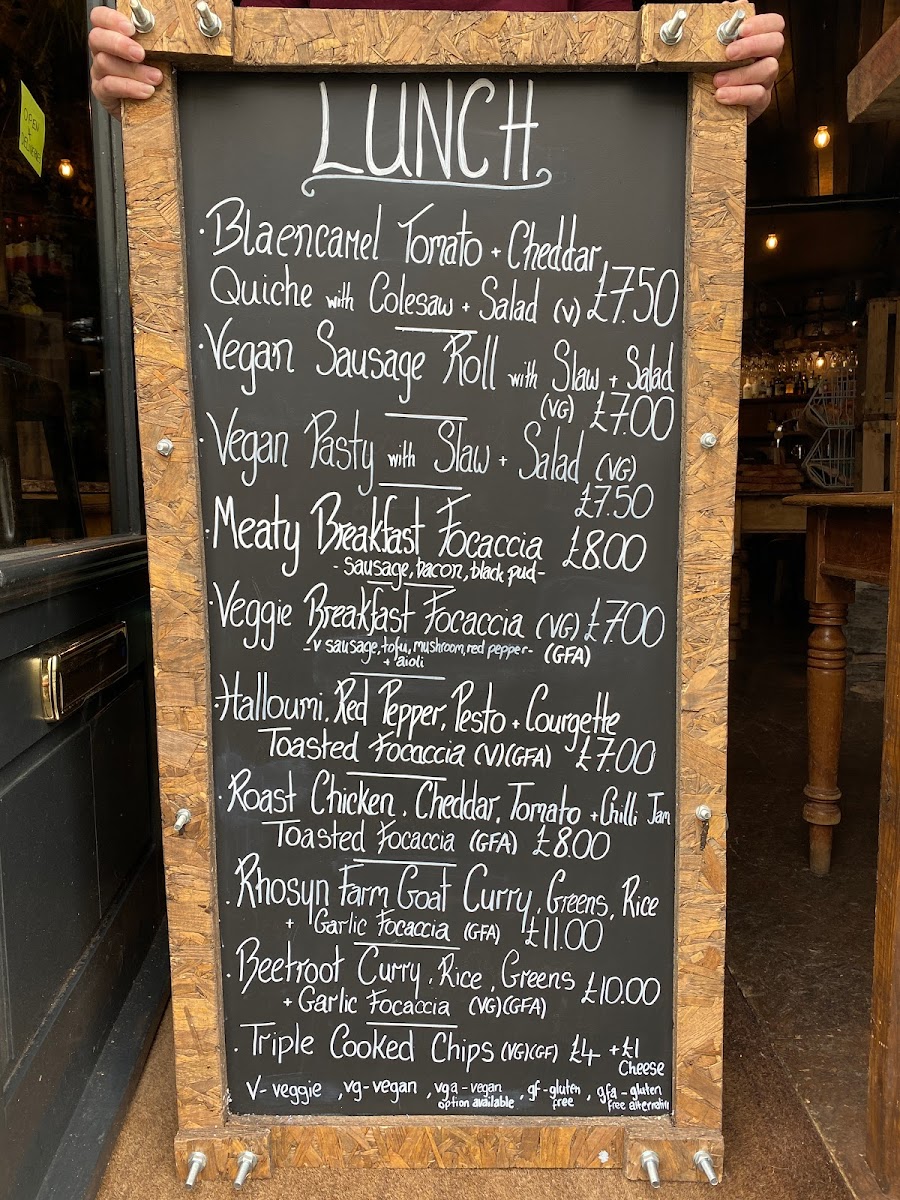 OPEN
+
DELIVERIE
LUNCH
· Blaencamel Tomato + Cheddar,
Quiche with Colesaw + Salad (V) £7.50
· Vegan Sausage Roll with Slaw + Salad
(VG) £7.00
· Vegan Pasty with Slaw + Salad (VG)
£7.50
· Meaty Breakfast Focaccia £8.00
- sausage, bacon, black pud -
· Veggie Breakfast Focaccia (VG) £7.00
- v sausage, tofu, mushroom, red pepper - (GFA)
+ aioli
· Halloumi, Red Pepper, Pesto + Courgette
Toasted Focaccia (V)(GFA) £7.00
· Roast Chicken, Cheddar, Tomato + Chilli Jam
Toasted Focaccia (GFA) £8.00
· Rhosyn Farm Goat Curry, Greens, Rice
+ Garlic Focaccia (GFA) £11.00
· Beetroot Curry, Rice, Greens £10.00
+ Garlic Focaccia (VG)(GFA)
· Triple Cooked Chips (VG)(GF) £4 + £1
Cheese
V - veggie, vg - vegan, vga - vegan option available, gf - gluten free, gfa - gluten free alternativ